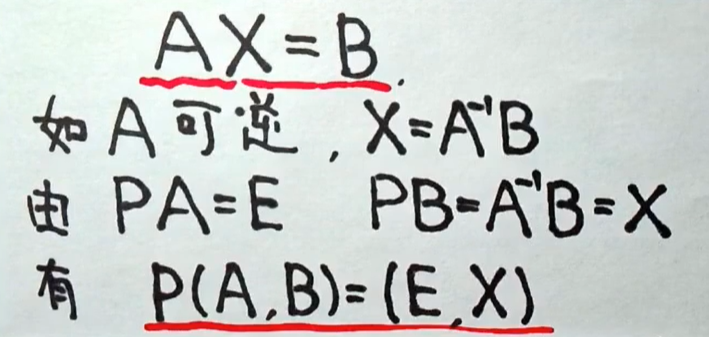 AX=B.
如A可逆,X=A⁻¹B
由 PA=E PB=A⁻¹B=X
有 P(A,B)=(E,X)